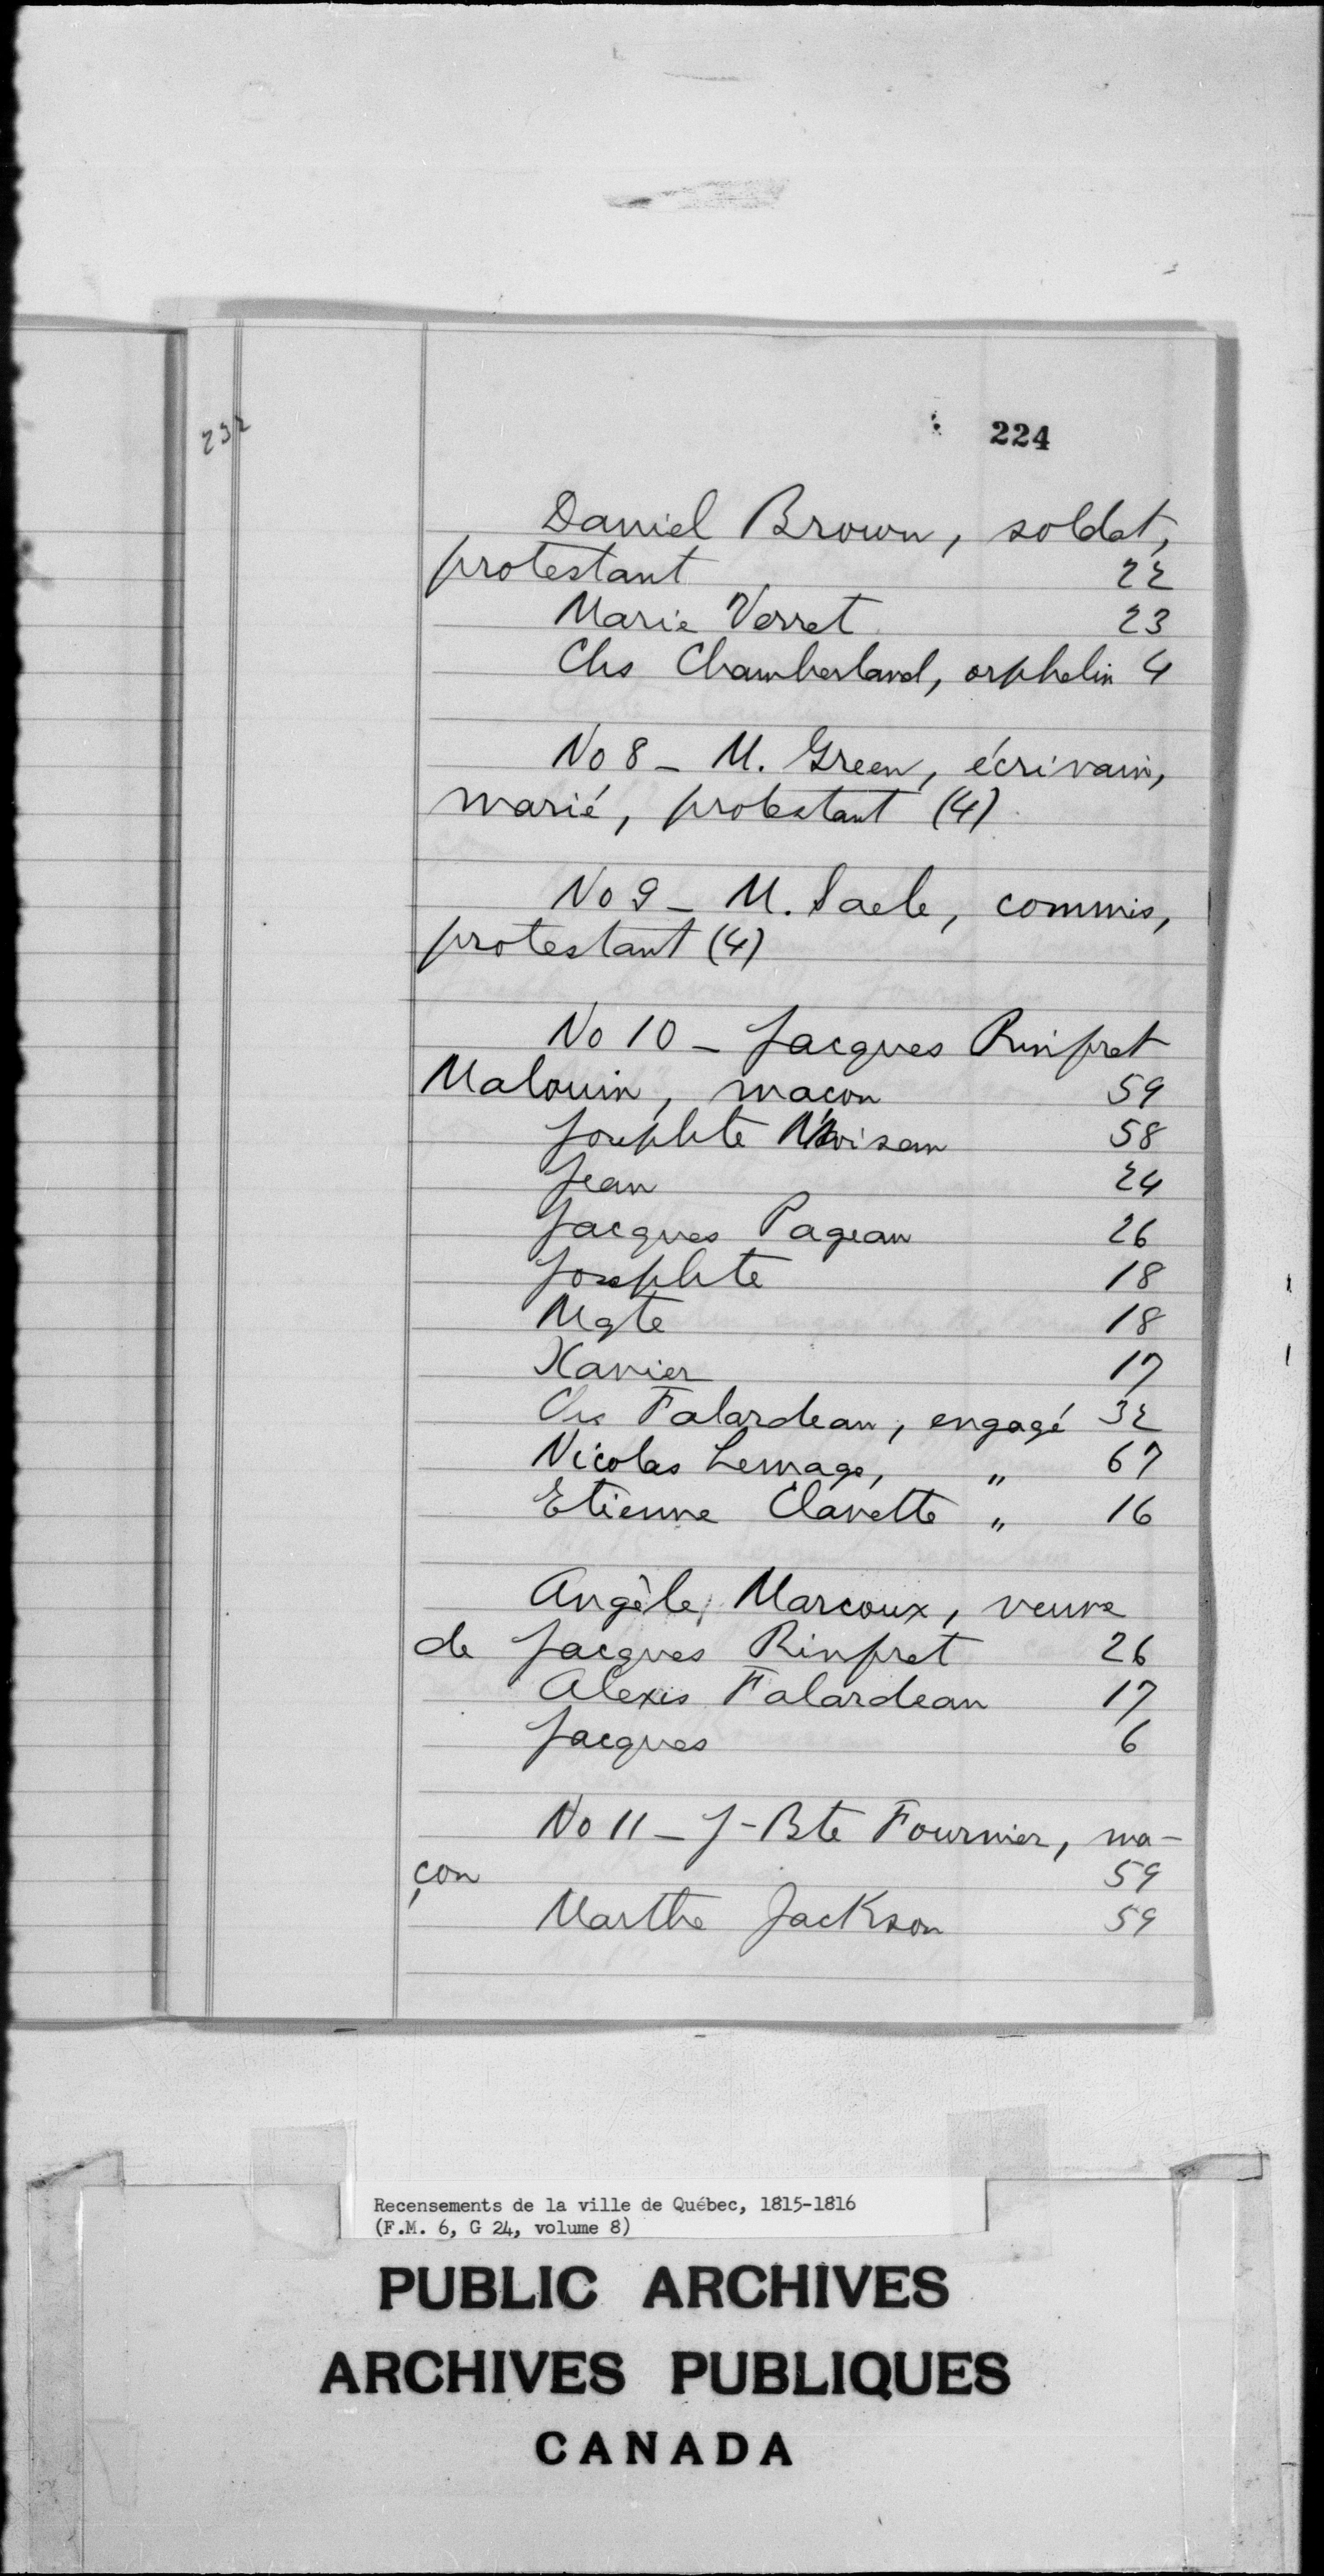 232
224
Daniel Brown, soldat,
protestant 22
Marie Verret 23
Chs Chamberland, orphelin 4
No 8 - M. Green, écrivain,
marié, protestant (4)
No 9 - M. , commis,
protestant (4)
No 10 - Jacques Rinfret
Malouin, macon 59
Josephte 58
Jean 24
Jacques Pageau 26
Josephte 18
Mgte 18
Xavier 17
Chs Falardeau, engagé 32
Nicolas Lemage, " 67
Etienne Clavette " 16
Angèle Marcoux, veuve
de Jacques Rinfret 26
Alexis Falardeau 17
Jacques 6
No 11 - J-Bte Fournier, ma-
çon 59
Marthe Jackson 59
Recensements de la ville de Québec, 1815-1816
(F.M. 6, G 24, volume 8)
PUBLIC ARCHIVES
ARCHIVES PUBLIQUES
CANADA